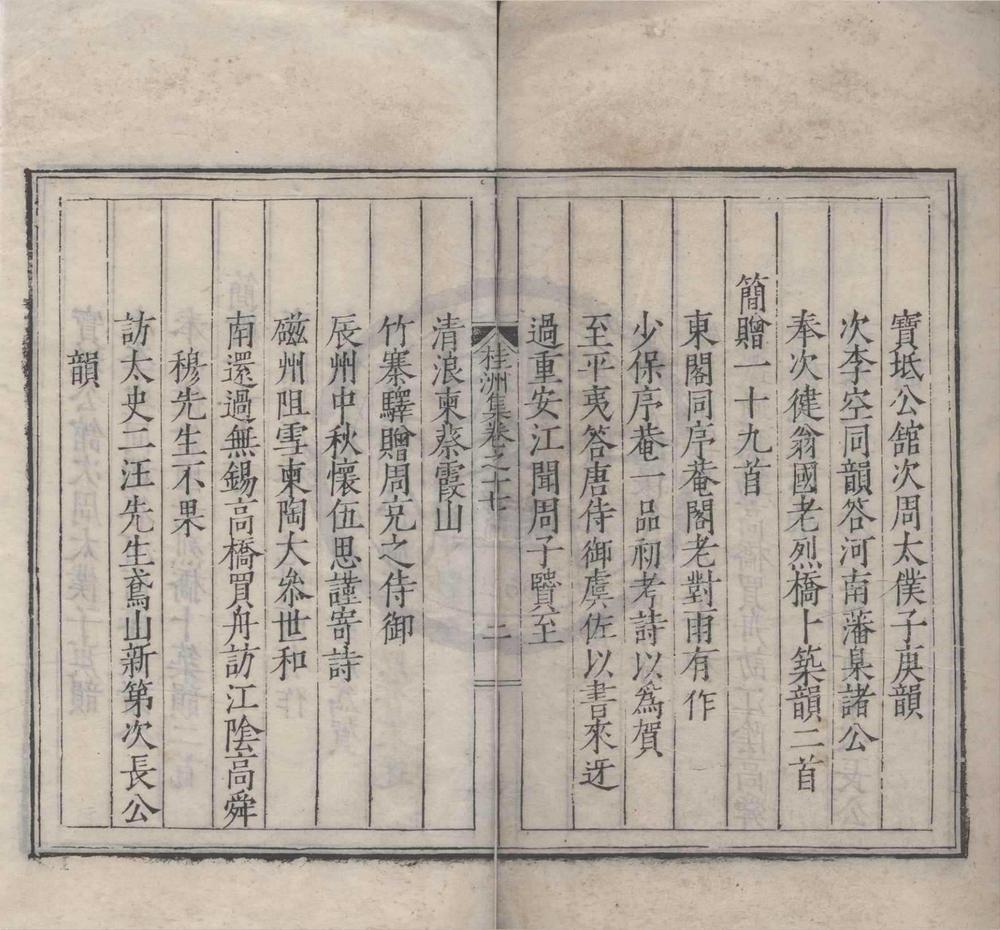 寶坻公舘次周太僕子庚韻
次李空同韻答河南藩臬諸公
奉次徤翁國老烈橋卜築韻二首
簡贈一十九首
東閣同序菴閣老對雨有作
少保序菴一品初考詩以爲賀
至平夷答唐侍御虞佐以書來迓
過重安江聞周子賢至
桂洲集卷之十七
二
清浪柬蔡霞山
竹寨驛贈周克之侍御
辰州中秋懷伍思謹寄詩
磁州阻雪柬陶大叅世和
南還過無錫高橋買舟訪江陰高舜
穆先生不果
訪太史二汪先生鳶山新第次長公
韻